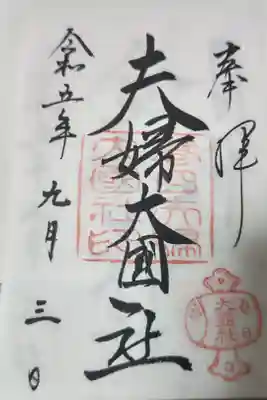 奉拝
夫婦大國社
令和五年九月三日